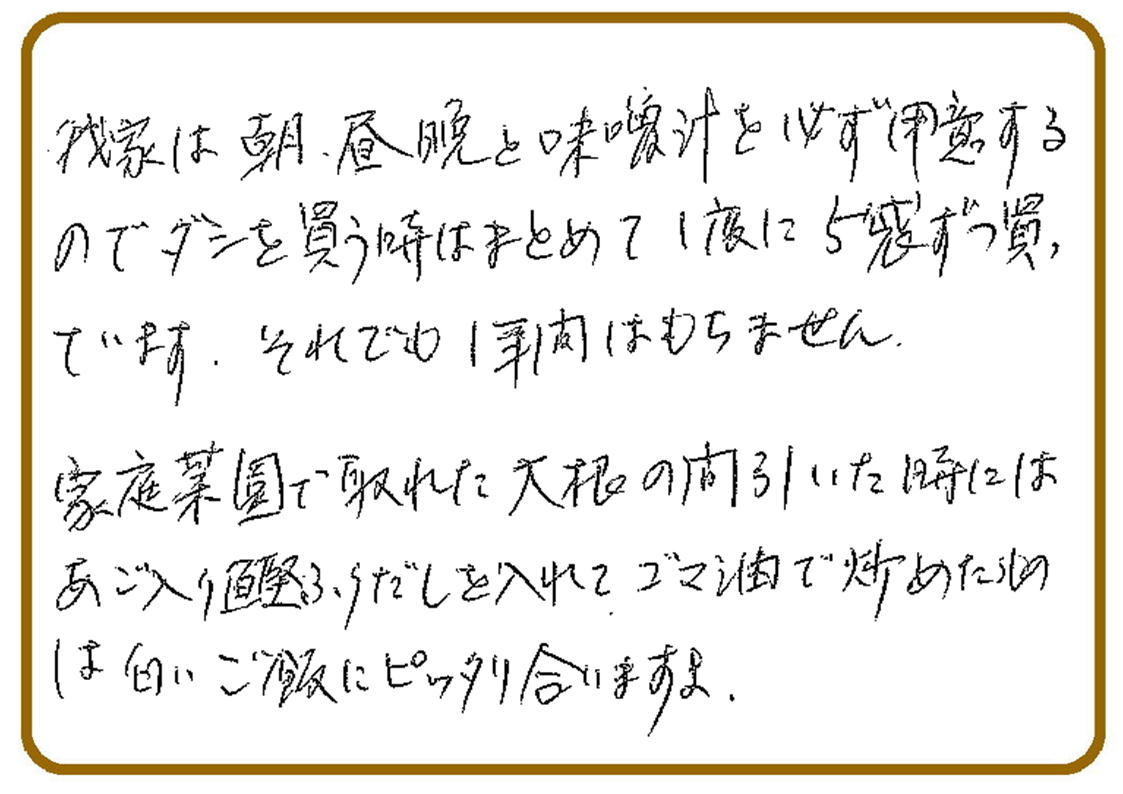 我家は朝、昼晩と味噌汁を必ず用意する
のでダシを買う時はまとめて1度に5袋ずつ買っ
ています. それでも1年間はもちません.
家庭菜園で取れた大根の間引いた時には
あご入りふりだしを入れて、ゴマ油で炒めたもの
は白いご飯にピッタリ合いますよ.